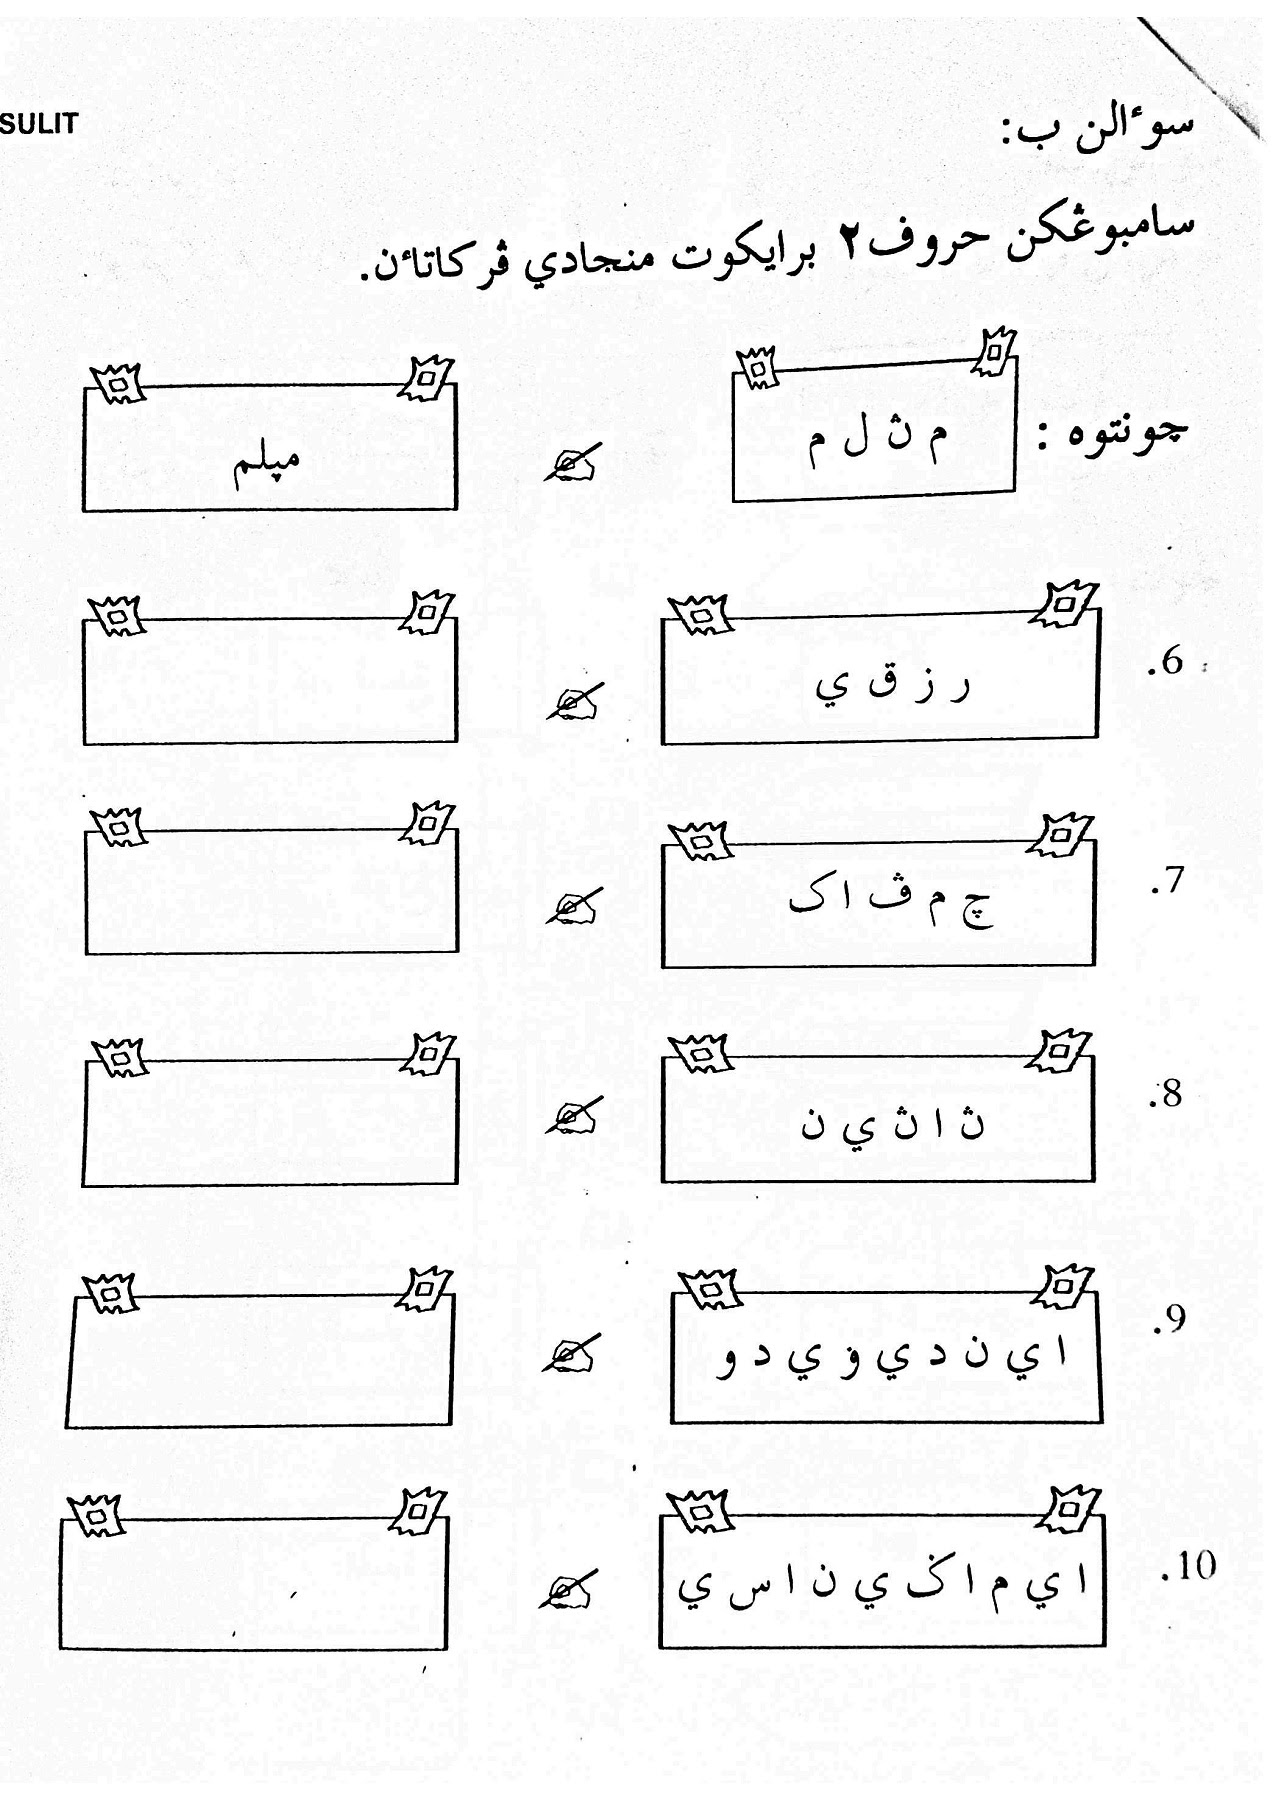 SULIT
سوءالن ب:
سامبوڠكن حروف٢ برايكوت منجادي ڤركاتاءن.
چونتوه :
م ڽ ل م
مڽلم
6.
ر ز ق ي
7.
چ م ڤ ا ک
8.
ڽ ا ڽ ي ن
9.
ا ي ن د ي ۏ ي د و
10.
ا ي م ا ݢ ي ن ا س ي